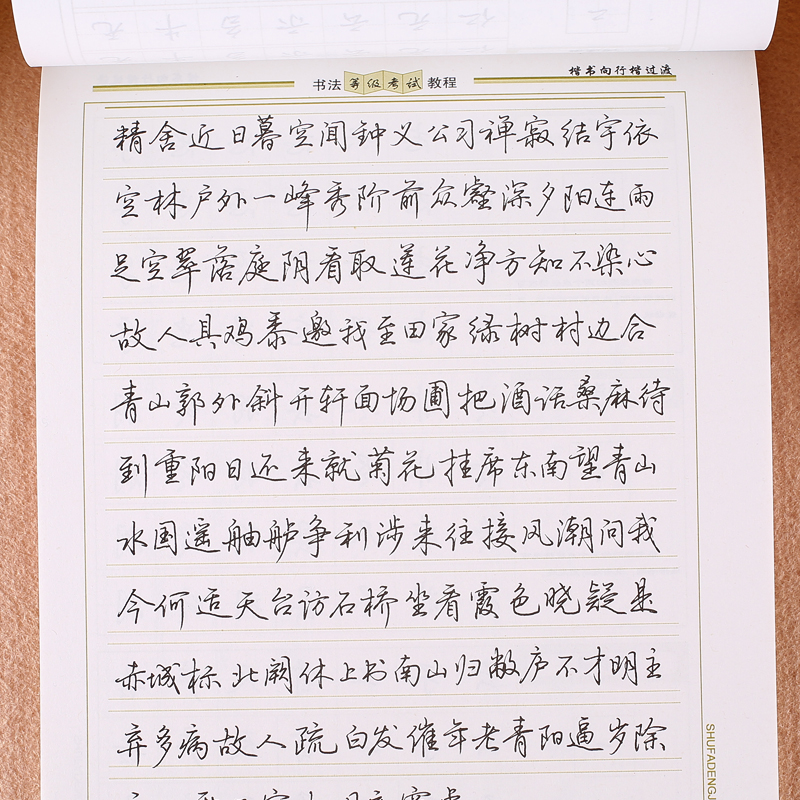 书法等级考试教程
楷书向行楷过渡
精舍近日暮空闻钟义公习禅寂结宇依
空林户外一峰秀阶前众壑深夕阳连雨
足空翠落庭阴看取莲花净方知不染心
故人具鸡黍邀我至田家绿树村边合
青山郭外斜开轩面场圃把酒话桑麻待
到重阳日还来就菊花挂席东南望青山
水国遥舳舻争利涉来往接风潮问我
今何适天台访石桥坐看霞色晓疑是
赤城标北阙休上书南山归敝庐不才明主
弃多病故人疏白发催年老青阳逼岁除
SHUFADENGJ